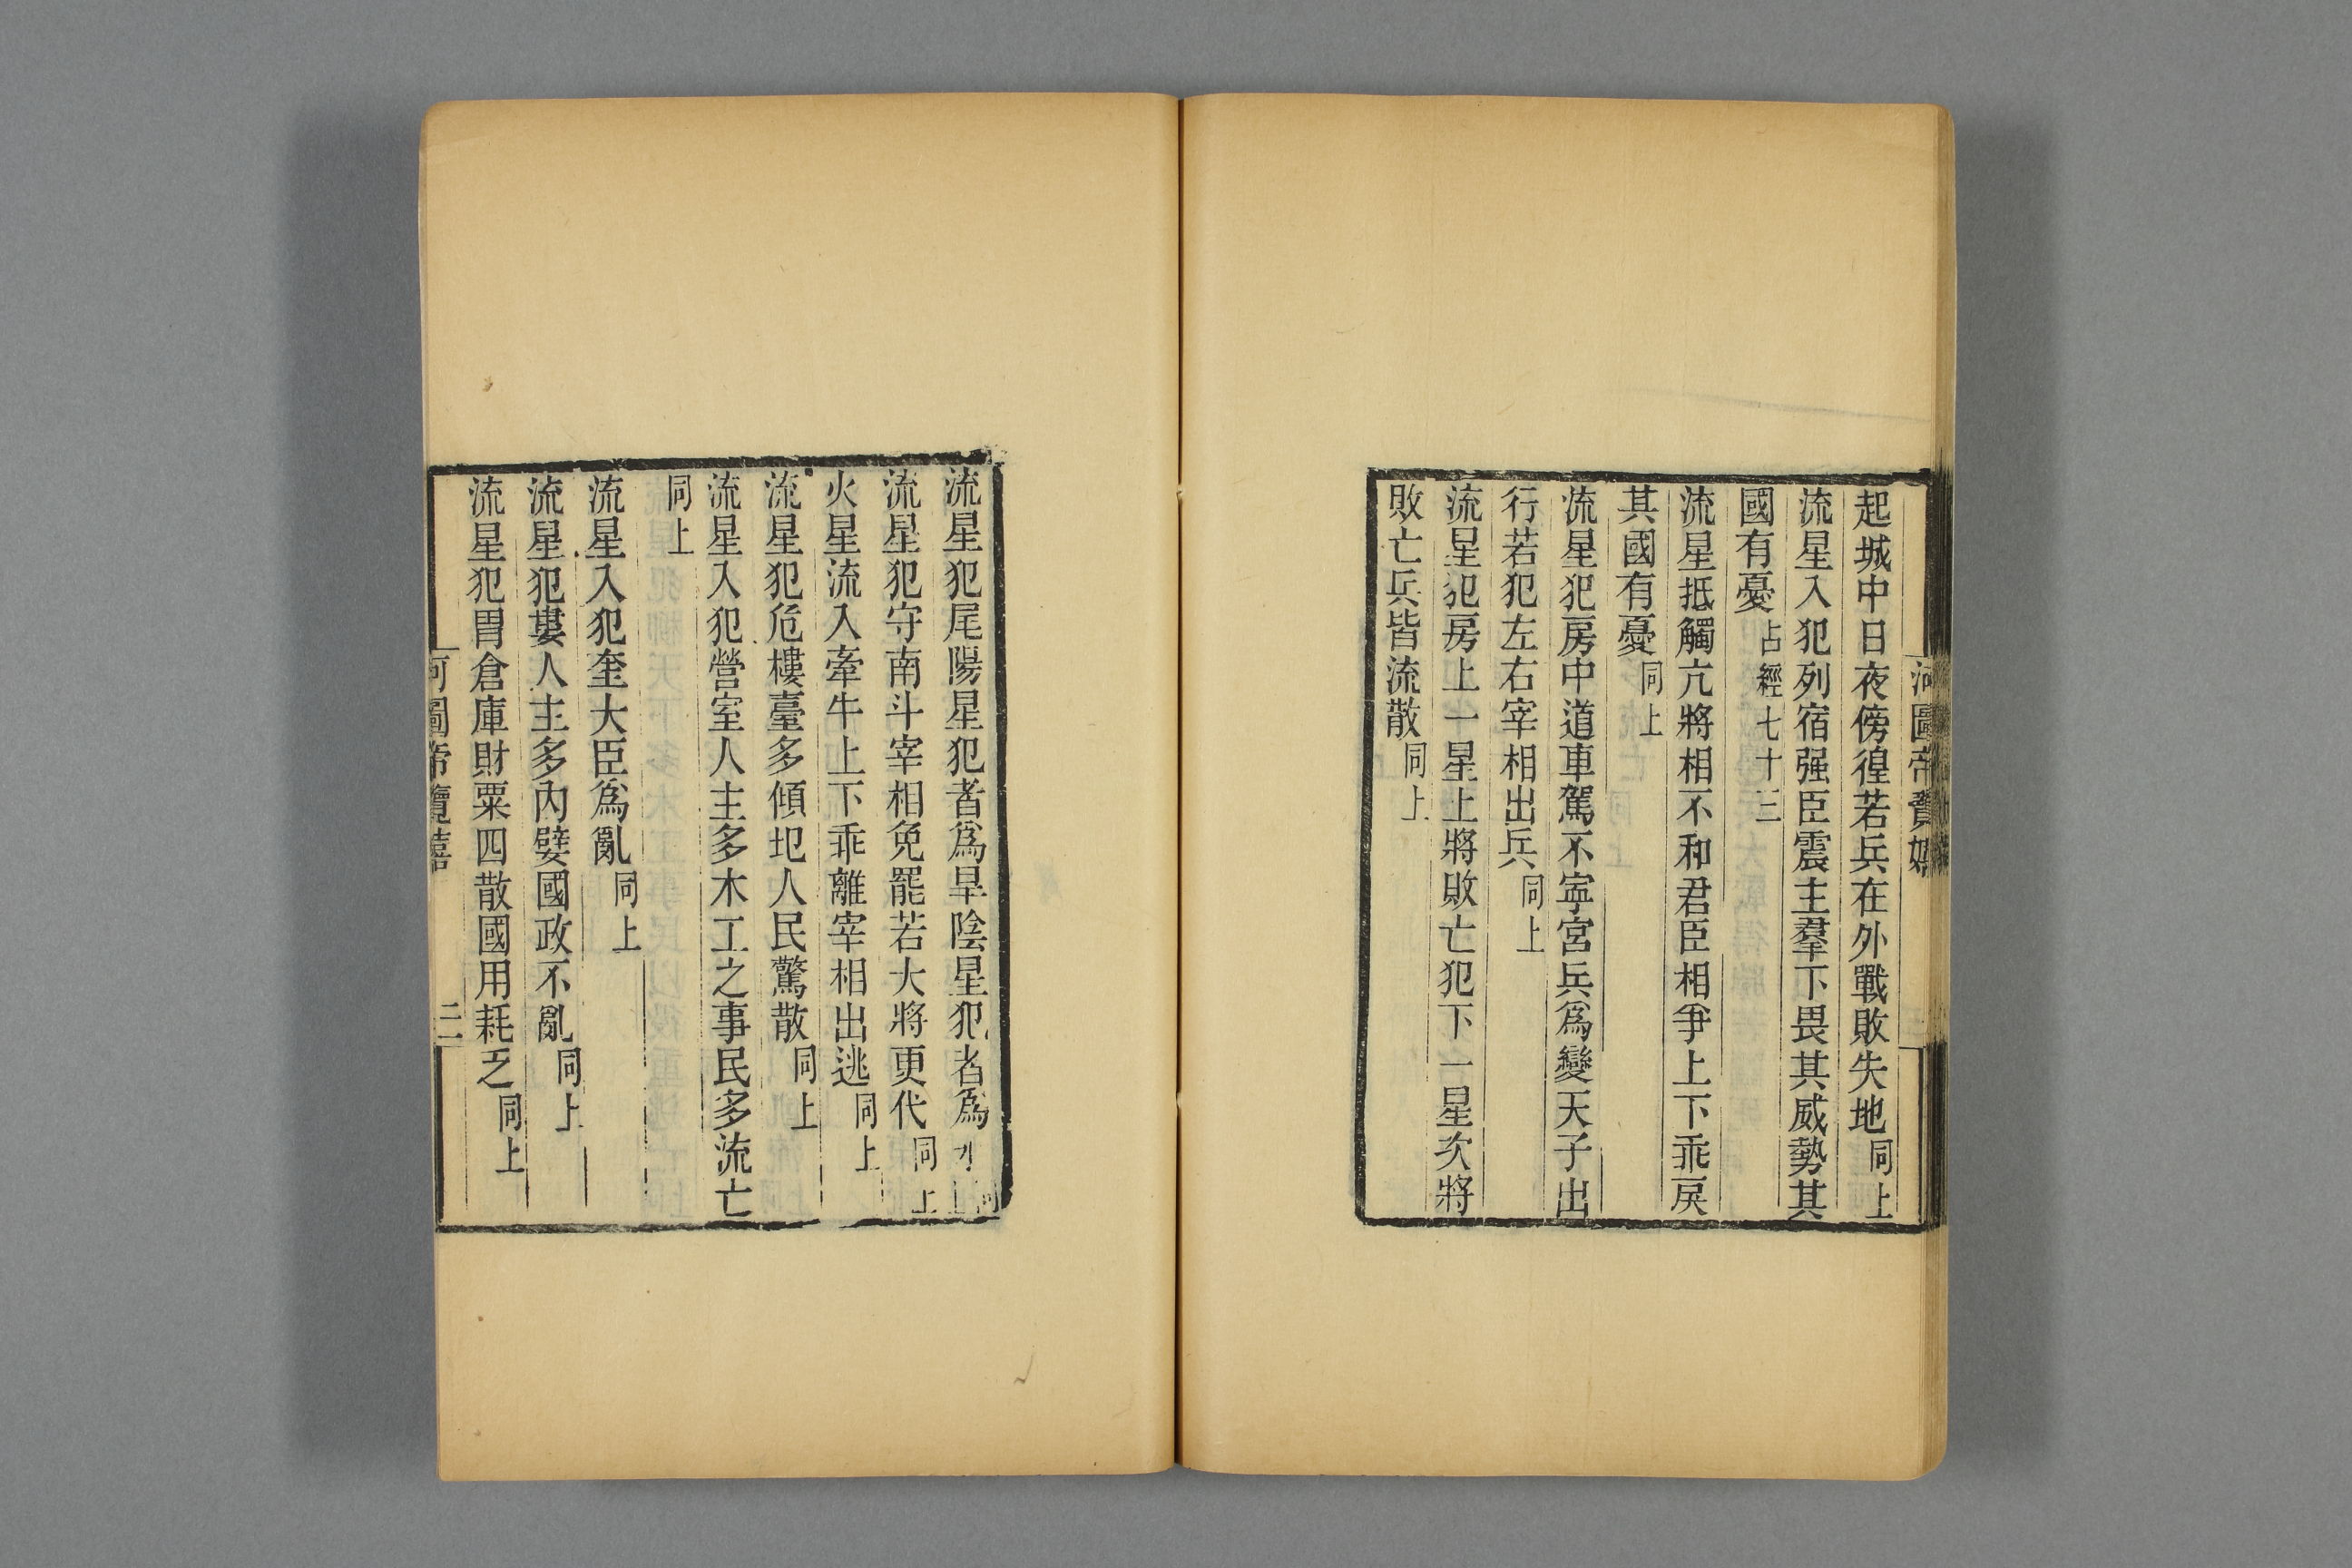 河圖帝覽嬉
起城中日夜傍徨若兵在外戰敗失地同上
流星入犯列宿强臣震主羣下畏其威勢其
國有憂占經七十三
流星抵觸亢將相不和君臣相爭上下乖戾
其國有憂同上
流星犯房中道車駕不寧宮兵爲變天子出
行若犯左右宰相出兵同上
流星犯房上一星上將敗亡犯下一星次將
敗亡兵皆流散同上
流星犯尾陽星犯者爲旱陰星犯者爲水同上
流星犯守南斗宰相免罷若大將更代同上
火星流入牽牛上下乖離宰相出逃同上
流星犯危樓臺多傾圯人民驚散同上
流星入犯營室人主多木工之事民多流亡
同上
流星入犯奎大臣爲亂同上
流星犯婁人主多內嬖國政不亂同上
流星犯胃倉庫財粟四散國用耗乏同上
河圖帝覽嬉